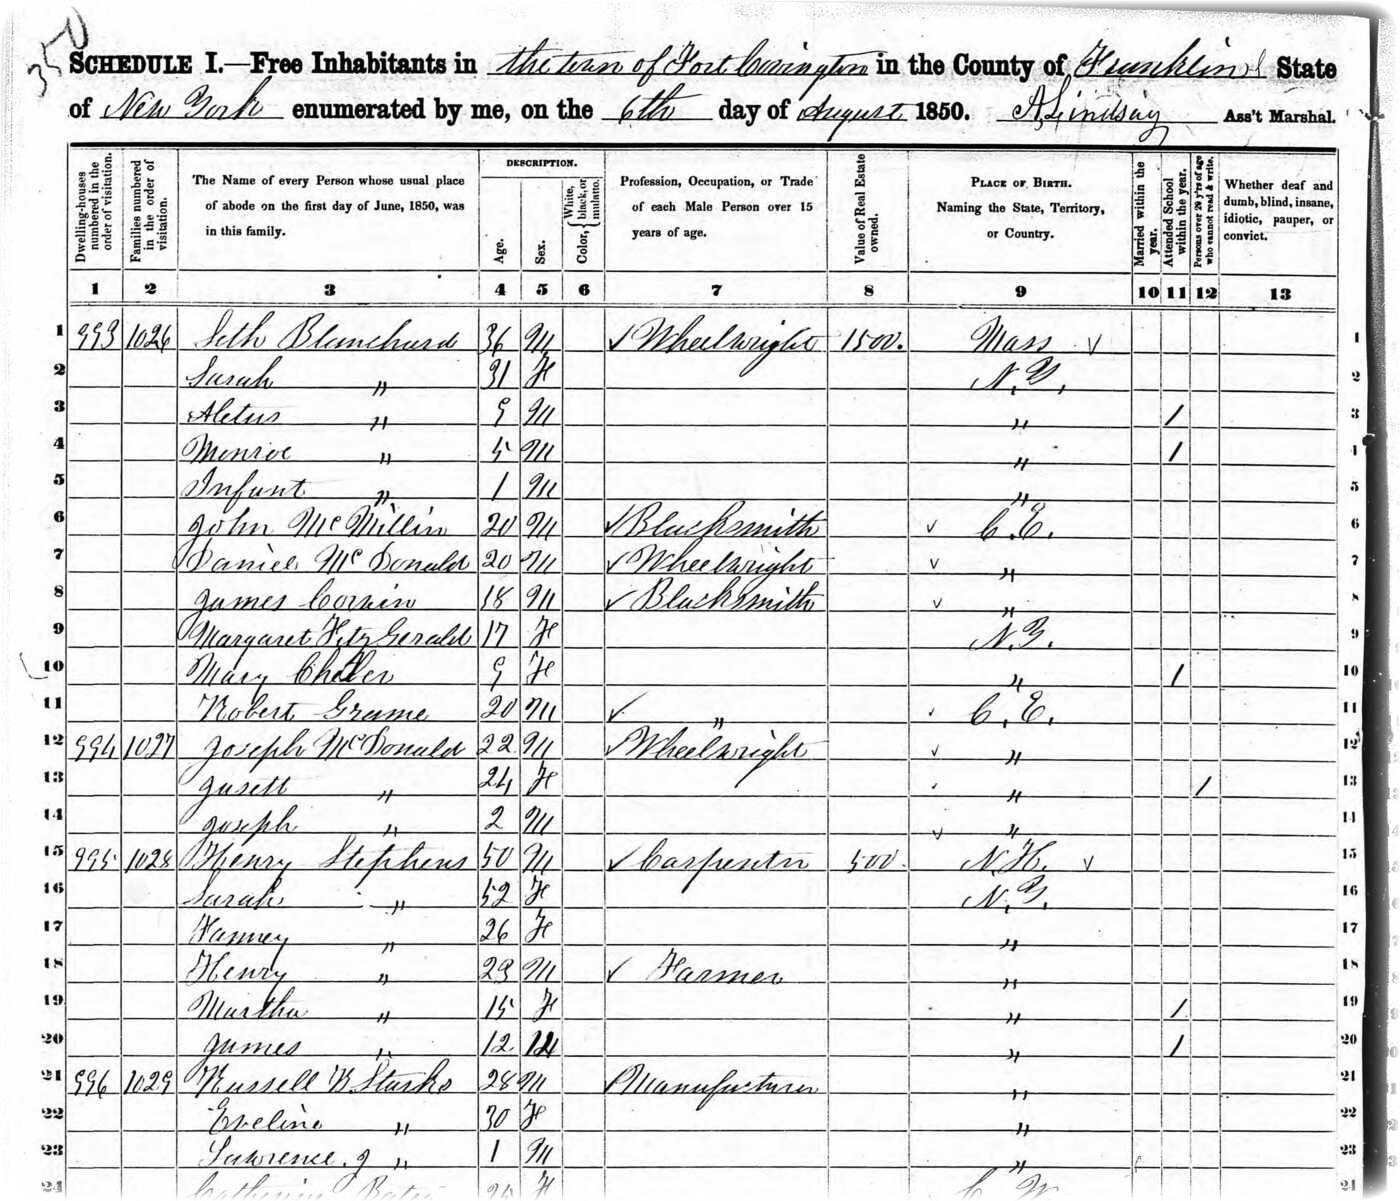 350
SCHEDULE I.—Free Inhabitants in the town of Fort Covington in the County of Franklin State
of New York enumerated by me, on the 6th day of August 1850. A Lindsay Ass't Marshal.
Dwelling-houses numbered in the order of visitation.
Families numbered in the order of visitation.
The Name of every Person whose usual place of abode on the first day of June, 1850, was in this family.
DESCRIPTION.
Age.
Sex.
Color, White, black, or mulatto.
Profession, Occupation, or Trade of each Male Person over 15 years of age.
Value of Real Estate owned.
PLACE OF BIRTH. Naming the State, Territory, or Country.
Married within the year.
Attended School within the year.
Persons over 20 y'rs of age who cannot read & write.
Whether deaf and dumb, blind, insane, idiotic, pauper, or convict.
1 2 3 4 5 6 7 8 9 10 11 12 13
1 993 1026 Seth Blanchard 36 M ✓ Wheelwright 1500. Mass v 1
2 Sarah " 31 F N.Y. 2
3 Aletus " 9 M " / 3
4 Monroe " 5 M " / 4
5 Infant " 1 M " 5
6 John McMillin 20 M ✓ Blacksmith v C.E. 6
7 Daniel McDonald 20 M ✓ Wheelwright v " 7
8 James 18 M ✓ Blacksmith v " 8
9 Margaret FitzGerald 17 F N.Y. 9
10 Mary 9 F " / 10
11 Robert Grame 20 M ✓ " C.E. 11
12 994 1027 Joseph McDonald 22 M ✓ Wheelwright v " 12
13 Jusett " 24 F " / 13
14 Joseph " 2 M v " 14
15 995 1028 Henry Stephens 50 M ✓ Carpenter 500. N.H. v 15
16 Sarah " 52 F N.Y. 16
17 Fanney " 26 F " 17
18 Henry " 23 M ✓ Farmer " 18
19 Martha " 15 F " / 19
20 James " 12 M " / 20
21 996 1029 Russell K Starks 28 M ✓ Manufacturer " 21
22 Eveline " 30 F " 22
23 Lawrence J " 1 M " 23
24 Catherine F C W 24